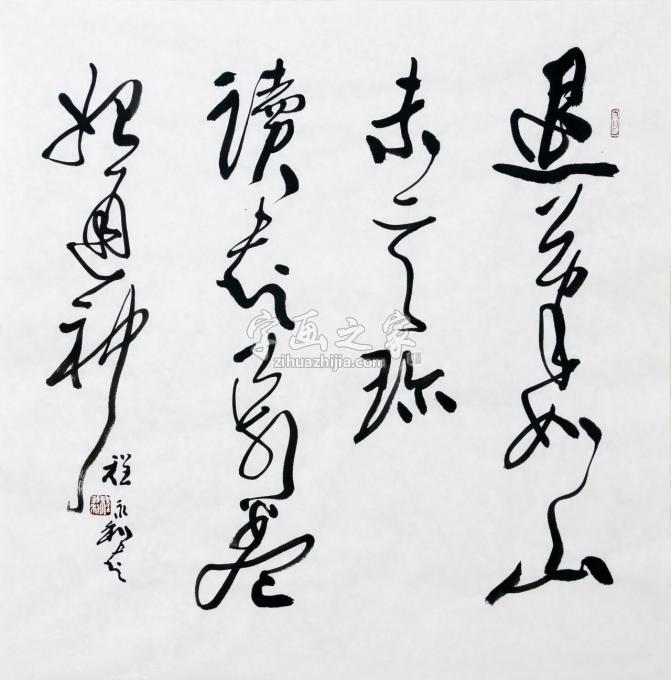 退筆如山
未足珍
讀書萬卷
始通神
程永利書
字画之家
zihuazhijia.com